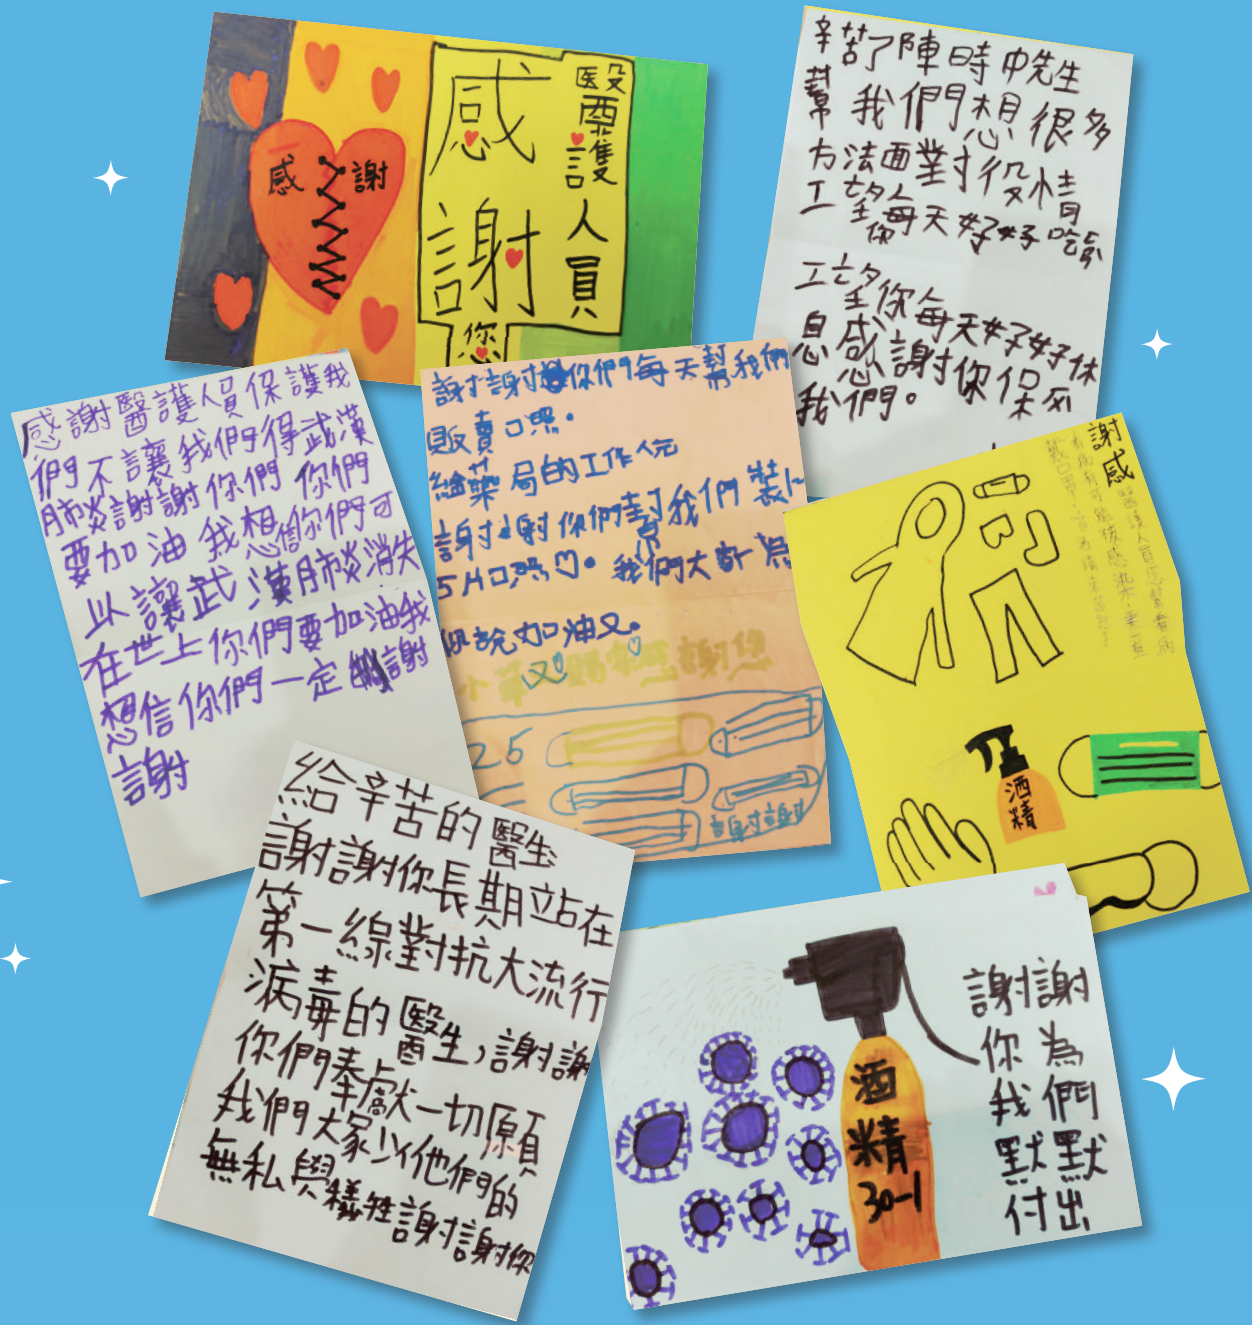 感
謝
感
謝
醫護人員
您
辛苦了陳時中先生
幫我們想很多
方法面對役情
工望你每天好好吃飯
工望你每天好好休
息感謝你保
我們。
感謝醫護人員保護我
們不讓我們得武漢
肺炎謝謝你們你們
要加油我想信你們可
以讓武漢肺炎消失
在世上你們要加油我
想信你們一定謝
謝
謝謝你們每天幫我們
販賣口罩。
給藥局的工作人元
謝謝你們對我們裝
5片口罩♡。我們大家
你說加油又。
25
謝謝
感謝
酒
精
給辛苦的醫生
謝謝你長期站在
第一線對抗大流行
病毒的醫生,謝謝
你們奉獻一切願
我們大家以他們的
無私與犧牲謝謝你
謝謝
你為
我們
默默
付出
酒
精
30-1